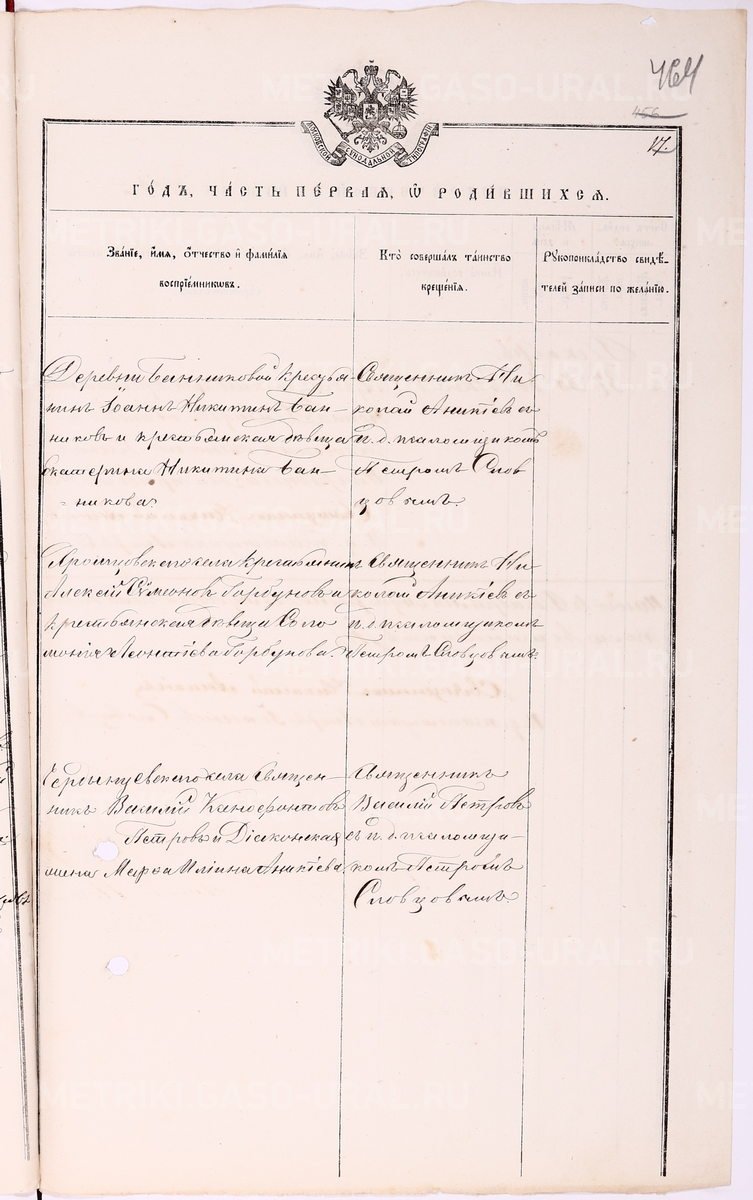 464
456
17.
МОСКОВСКОЙ СѴНОДАЛЬНОЙ ТИПОГРАФІИ
ГО́ДЪ, ЧА́СТЬ ПЕ́РВАЯ, Ѿ РОДИ́ВШИХСЯ.
Зва́ніе, и҆́мя, ѻ҆́тчество и҆ фами́лія
воспріе́мниковъ.
Кто̀ соверша́лъ та́инство
креще́нія.
Рꙋкоприкла́дство свидѣ́-
телей за́писи по жела́нію.
Деревни Банниковой крестья
нинъ Іоаннъ Никитинъ Бан-
никовъ и крестьянская дѣвица
Екатерина Никитина Бан-
=никова.
Священникъ Ни
колай Аникіевъ съ
и. д. псаломщикомъ
Петромъ Слов
цовымъ.
села крестьянинъ
Алексѣй Сѵмеоновъ Горбуновъ и
крестьянская дѣвица Соло
монія Леонтіева Горбунова.
Священникъ Ни
колай Аникіевъ съ
и. д. псаломщикомъ
Петромъ Словцовымъ.
села Священ-
никъ Василій Ксенофонтовъ
Петровъ и Діаконская
жена Марѳа Иліина Аникіева.
Священникъ
Василій Петровъ
съ и. д. псаломщи-
комъ Петромъ
Словцовымъ.
METRIKI.GASO-URAL.RU